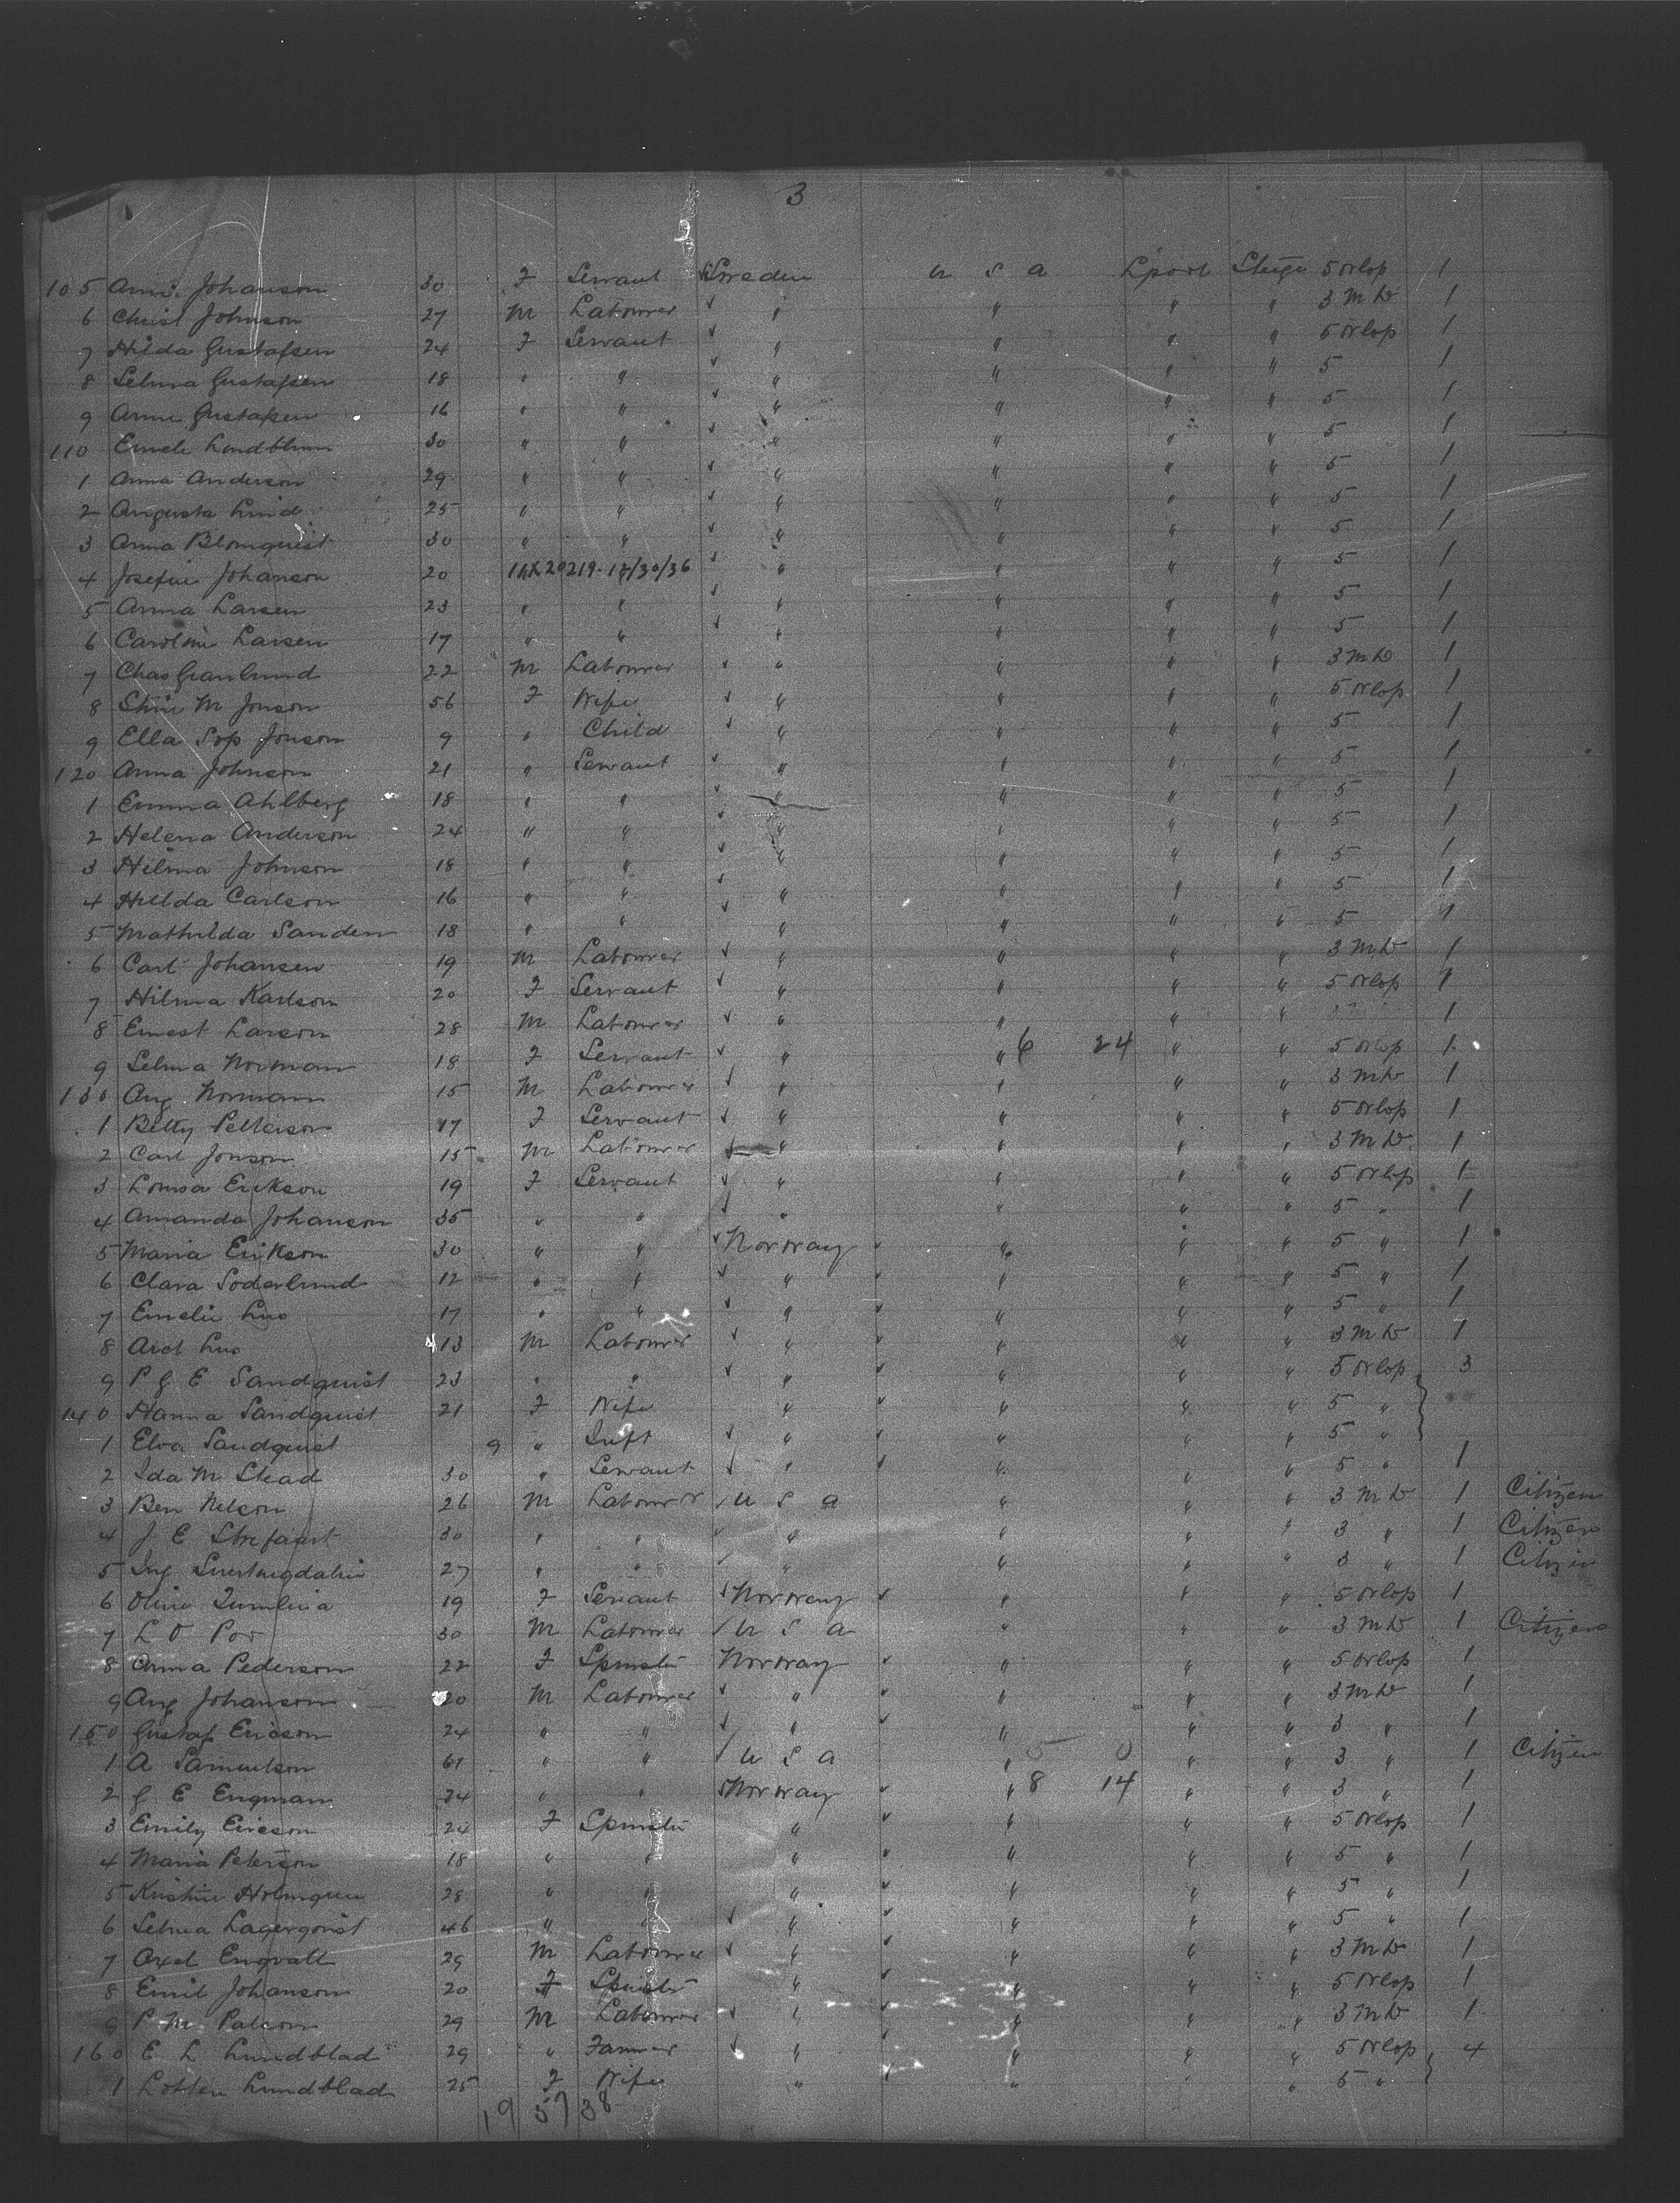 3
105 Johanson 30 F Servant Sweden U S A Lpool 5 Orlop 1
6 Christ Johnson 27 M Labourer " " " " 3 M D 1
7 Hilda Gustafsen 24 F Servant " " " " 5 Orlop 1
8 Selma Gustafsen 18 " " " " " " 5 1
9 Anna Gustafsen 16 " " " " " " 5 1
110 30 " " " " " " 5 1
1 Anna Anderson 29 " " " " " " 5 1
2 Augusta Lind 25 " " " " " " 5 1
3 Anna Blomquist 30 " " " " " " 5 1
4 Josefin Johanson 20 " " " " 5 1
5 Anna Larsen 23 " " " " " " 5 1
6 Carolini Larsen 17 " " " " " " 5 1
7 Chas Granlund 22 M Labourer " " " " 3 M D 1
8 M Jonson 56 F Wife " " " " 5 Orlop 1
9 Ella Sop Jonson 9 " Child " " " " 5 1
120 Anna Johnson 21 " Servant " " " " 5 1
1 Emma Ahlberg 18 " " " " " " 5 1
2 Helena Anderson 24 " " " " " " 5 1
3 Hilma Johnson 18 " " " " " " 5 1
4 Hulda Carlson 16 " " " " " " 5 1
5 Mathilda Sanden 18 " " " " " " 5 1
6 Carl Johansen 19 M Labourer " " " " 3 M D 1
7 Hilma Karlson 20 F Servant " " " " 5 Orlop 1
8 Ernest Larson 28 M Labourer " " " " 1
9 Selma Norman 18 F Servant " " 6 24 " " 5 Orlop 1
130 Aug Normann 15 M Labourer " " " " 3 M D 1
1 Betty Petterson 17 F Servant " " " " 5 Orlop 1
2 Carl Jonson 15 M Labourer " " " " 3 M D 1
3 Lovisa Erikson 19 F Servant " " " " 5 Orlop 1
4 Amanda Johanson 35 " " " " " " 5 " 1
5 Maria Erikson 30 " " Norway " " " 5 " 1
6 Clara Soderlund 12 " " " " " " 5 " 1
7 Emelie 17 " " " " " " 5 " 1
8 13 M Labourer " " " " 3 M D 1
9 P G E Sandquist 23 " " " " " " 5 Orlop 3
140 Hanna Sandquist 21 F Wife " " " " 5 "
1 Elva Sandquist 9 " Inft " " " " 5 "
2 Ida M Stead 30 " Servant " " " " 5 " 1
3 Ben Nelson 26 M Labourer U S A " " " 3 M D 1 Citizen
4 J E 30 " " " " " " 3 " 1 Citizen
5 27 " " " " " " 3 " 1 Citizen
6 19 F Servant Norway " " " 5 Orlop 1
7 L O 30 M Labourer U S A " " " 3 M D 1 Citizen
8 Anna Pederson 22 F Spinster Norway " " " 5 Orlop 1
9 Aug Johanson 20 M Labourer " " " " 3 M D 1
150 Gustaf Ericson 24 " " " " " " 3 " 1
1 A Samuelson 61 " " U S A " 5 0 " " 3 " 1 Citizen
2 G E Engman 24 " " Norway " 8 14 " " 3 " 1
3 Emily Ericson 24 F Spinster " " " " 5 Orlop 1
4 Maria Peterson 18 " " " " " " 5 " 1
5 Kristin Holmgren 28 " " " " " " 5 " 1
6 Selma Lagerqvist 46 " " " " " " 5 " 1
7 Axel Engvall 29 M Labourer " " " " 3 M D 1
8 Emili Johanson 20 F Spinster " " " " 5 Orlop 1
9 P M Palson 29 M Labourer " " " " 3 M D 1
160 E L Lundblad 29 " Farmer " " " " 5 Orlop 4
1 Lotten Lundblad 25 F Wife " " " 5 "
19 57 38